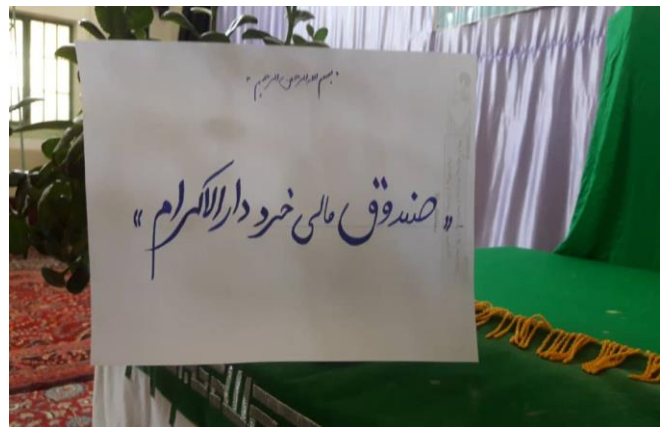 بسم الله الرحمن الرحیم
«صندوق مالی خرد دارالاکرام»